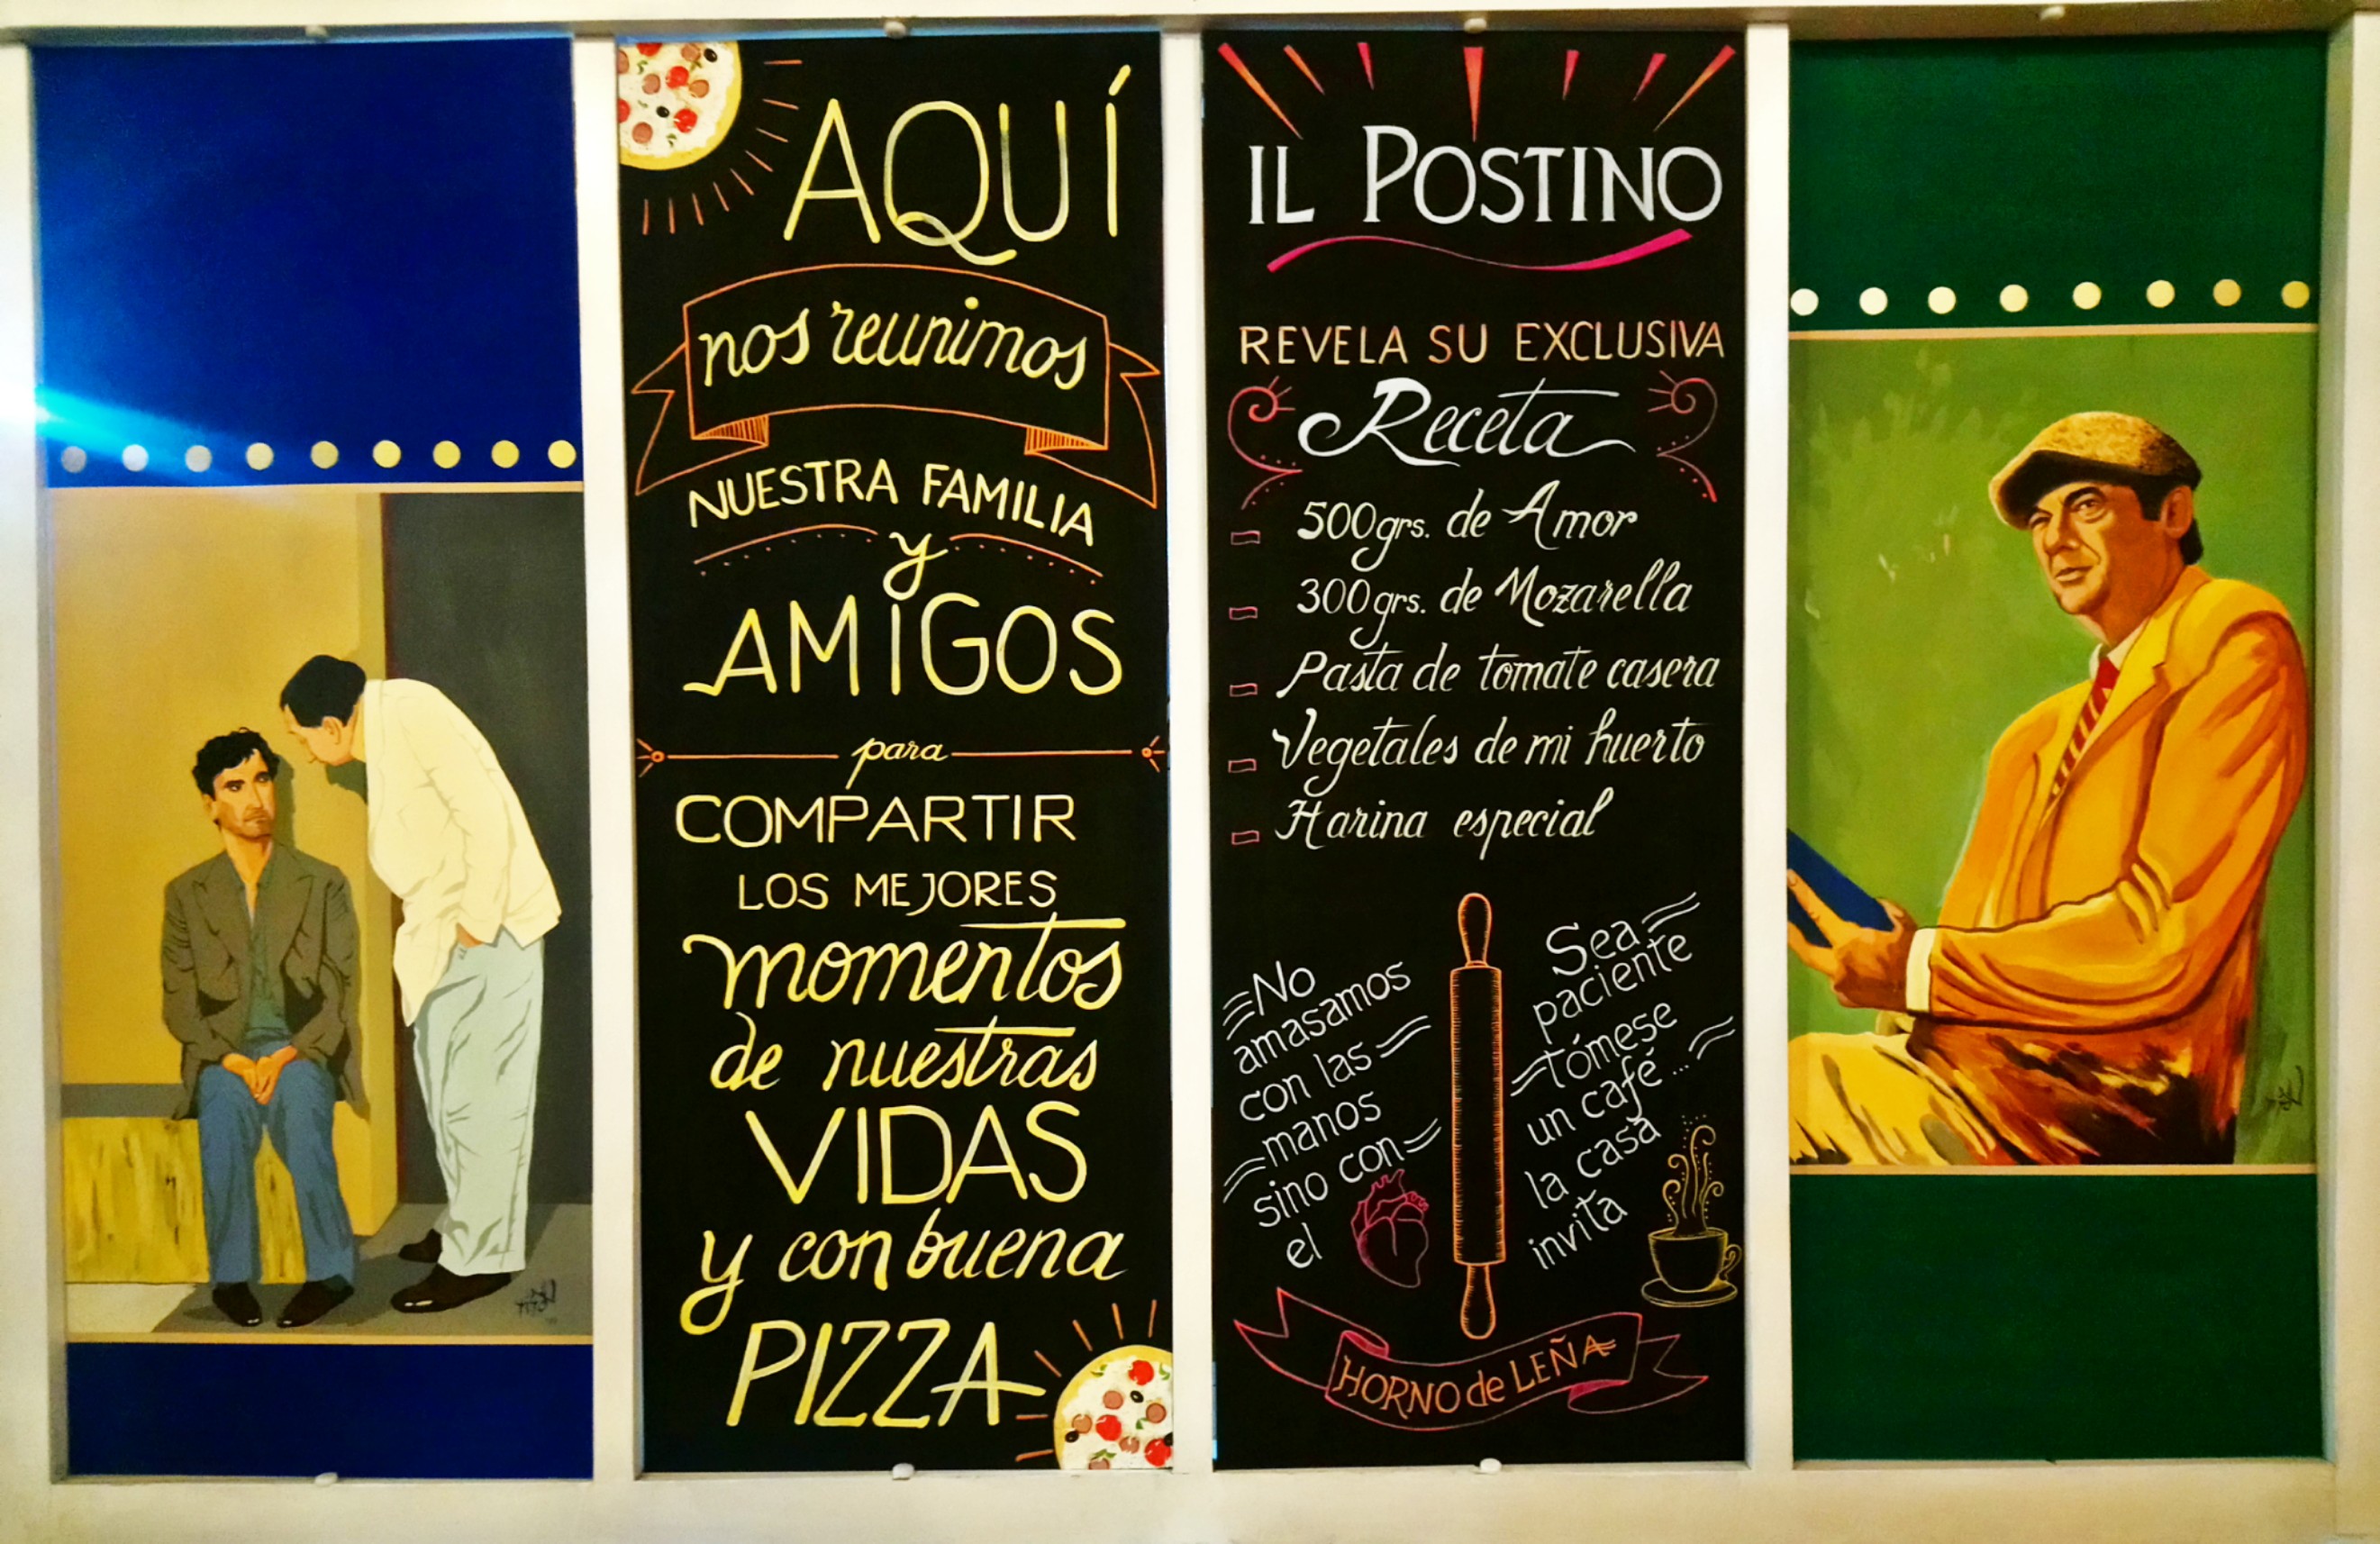 AQUÍ
nos reunimos
NUESTRA FAMILIA
y
AMIGOS
para
COMPARTIR
LOS MEJORES
momentos
de nuestras
VIDAS
y con buena
PIZZA
IL POSTINO
REVELA SU EXCLUSIVA
Receta
500grs. de Amor
300grs. de Mozarella
Pasta de tomate casera
Vegetales de mi huerto
Harina especial
No
amasamos
con las
manos
sino con
el
Sea
paciente
tómese
un café...
la casa
invita
HORNO de LEÑA